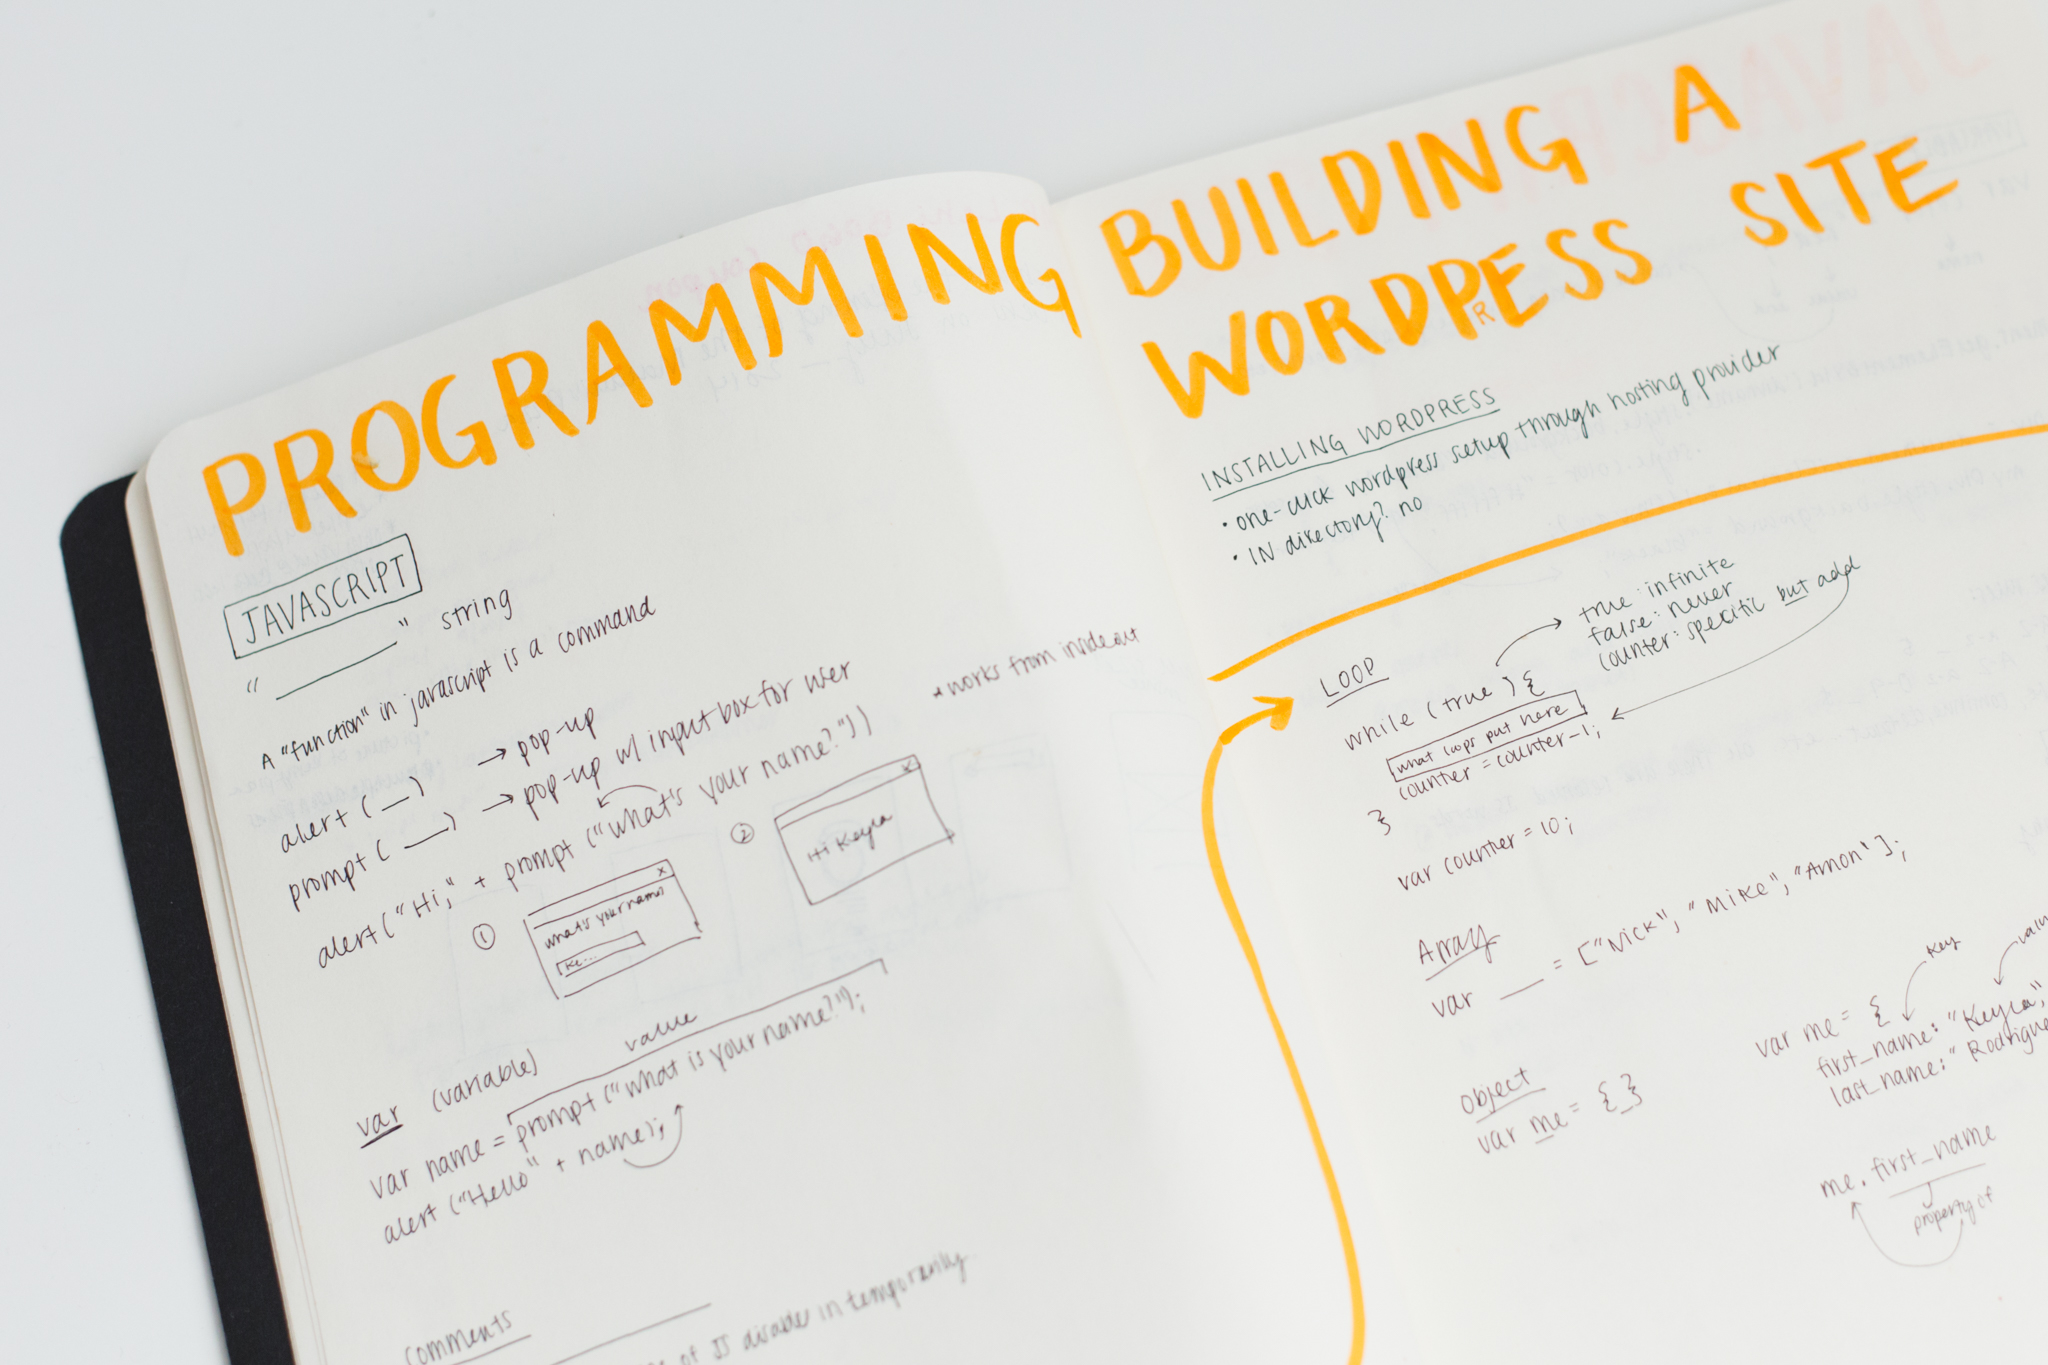 PROGRAMMING
JAVASCRIPT
"______" string
A "function" in javascript is a command
alert ( __ ) → pop-up
prompt ( ___ ) → pop-up w/ input box for user
alert ("Hi," + prompt ("what's your name?"))
*works from inside out
①
what's your name
Ke...
②
Hi Keyla
var (variable)
value
var name = prompt ("what is your name?");
alert ("Hello" + name);
comments
of JS disable in temporarily
BUILDING A
WORDPRESS SITE
INSTALLING WORDPRESS
• one-click wordpress setup through hosting provider
• IN directory? no
LOOP
true: infinite
false: never
counter: specific but add
while (true) {
what loops put here
counter = counter-1;
}
var counter = 10;
Array
var ___ = ["Nick", "Mike", "Amon'];
object
var me = {_}
key
var me = {
first_name: "Keyla",
last_name: "
me.first_name
property of